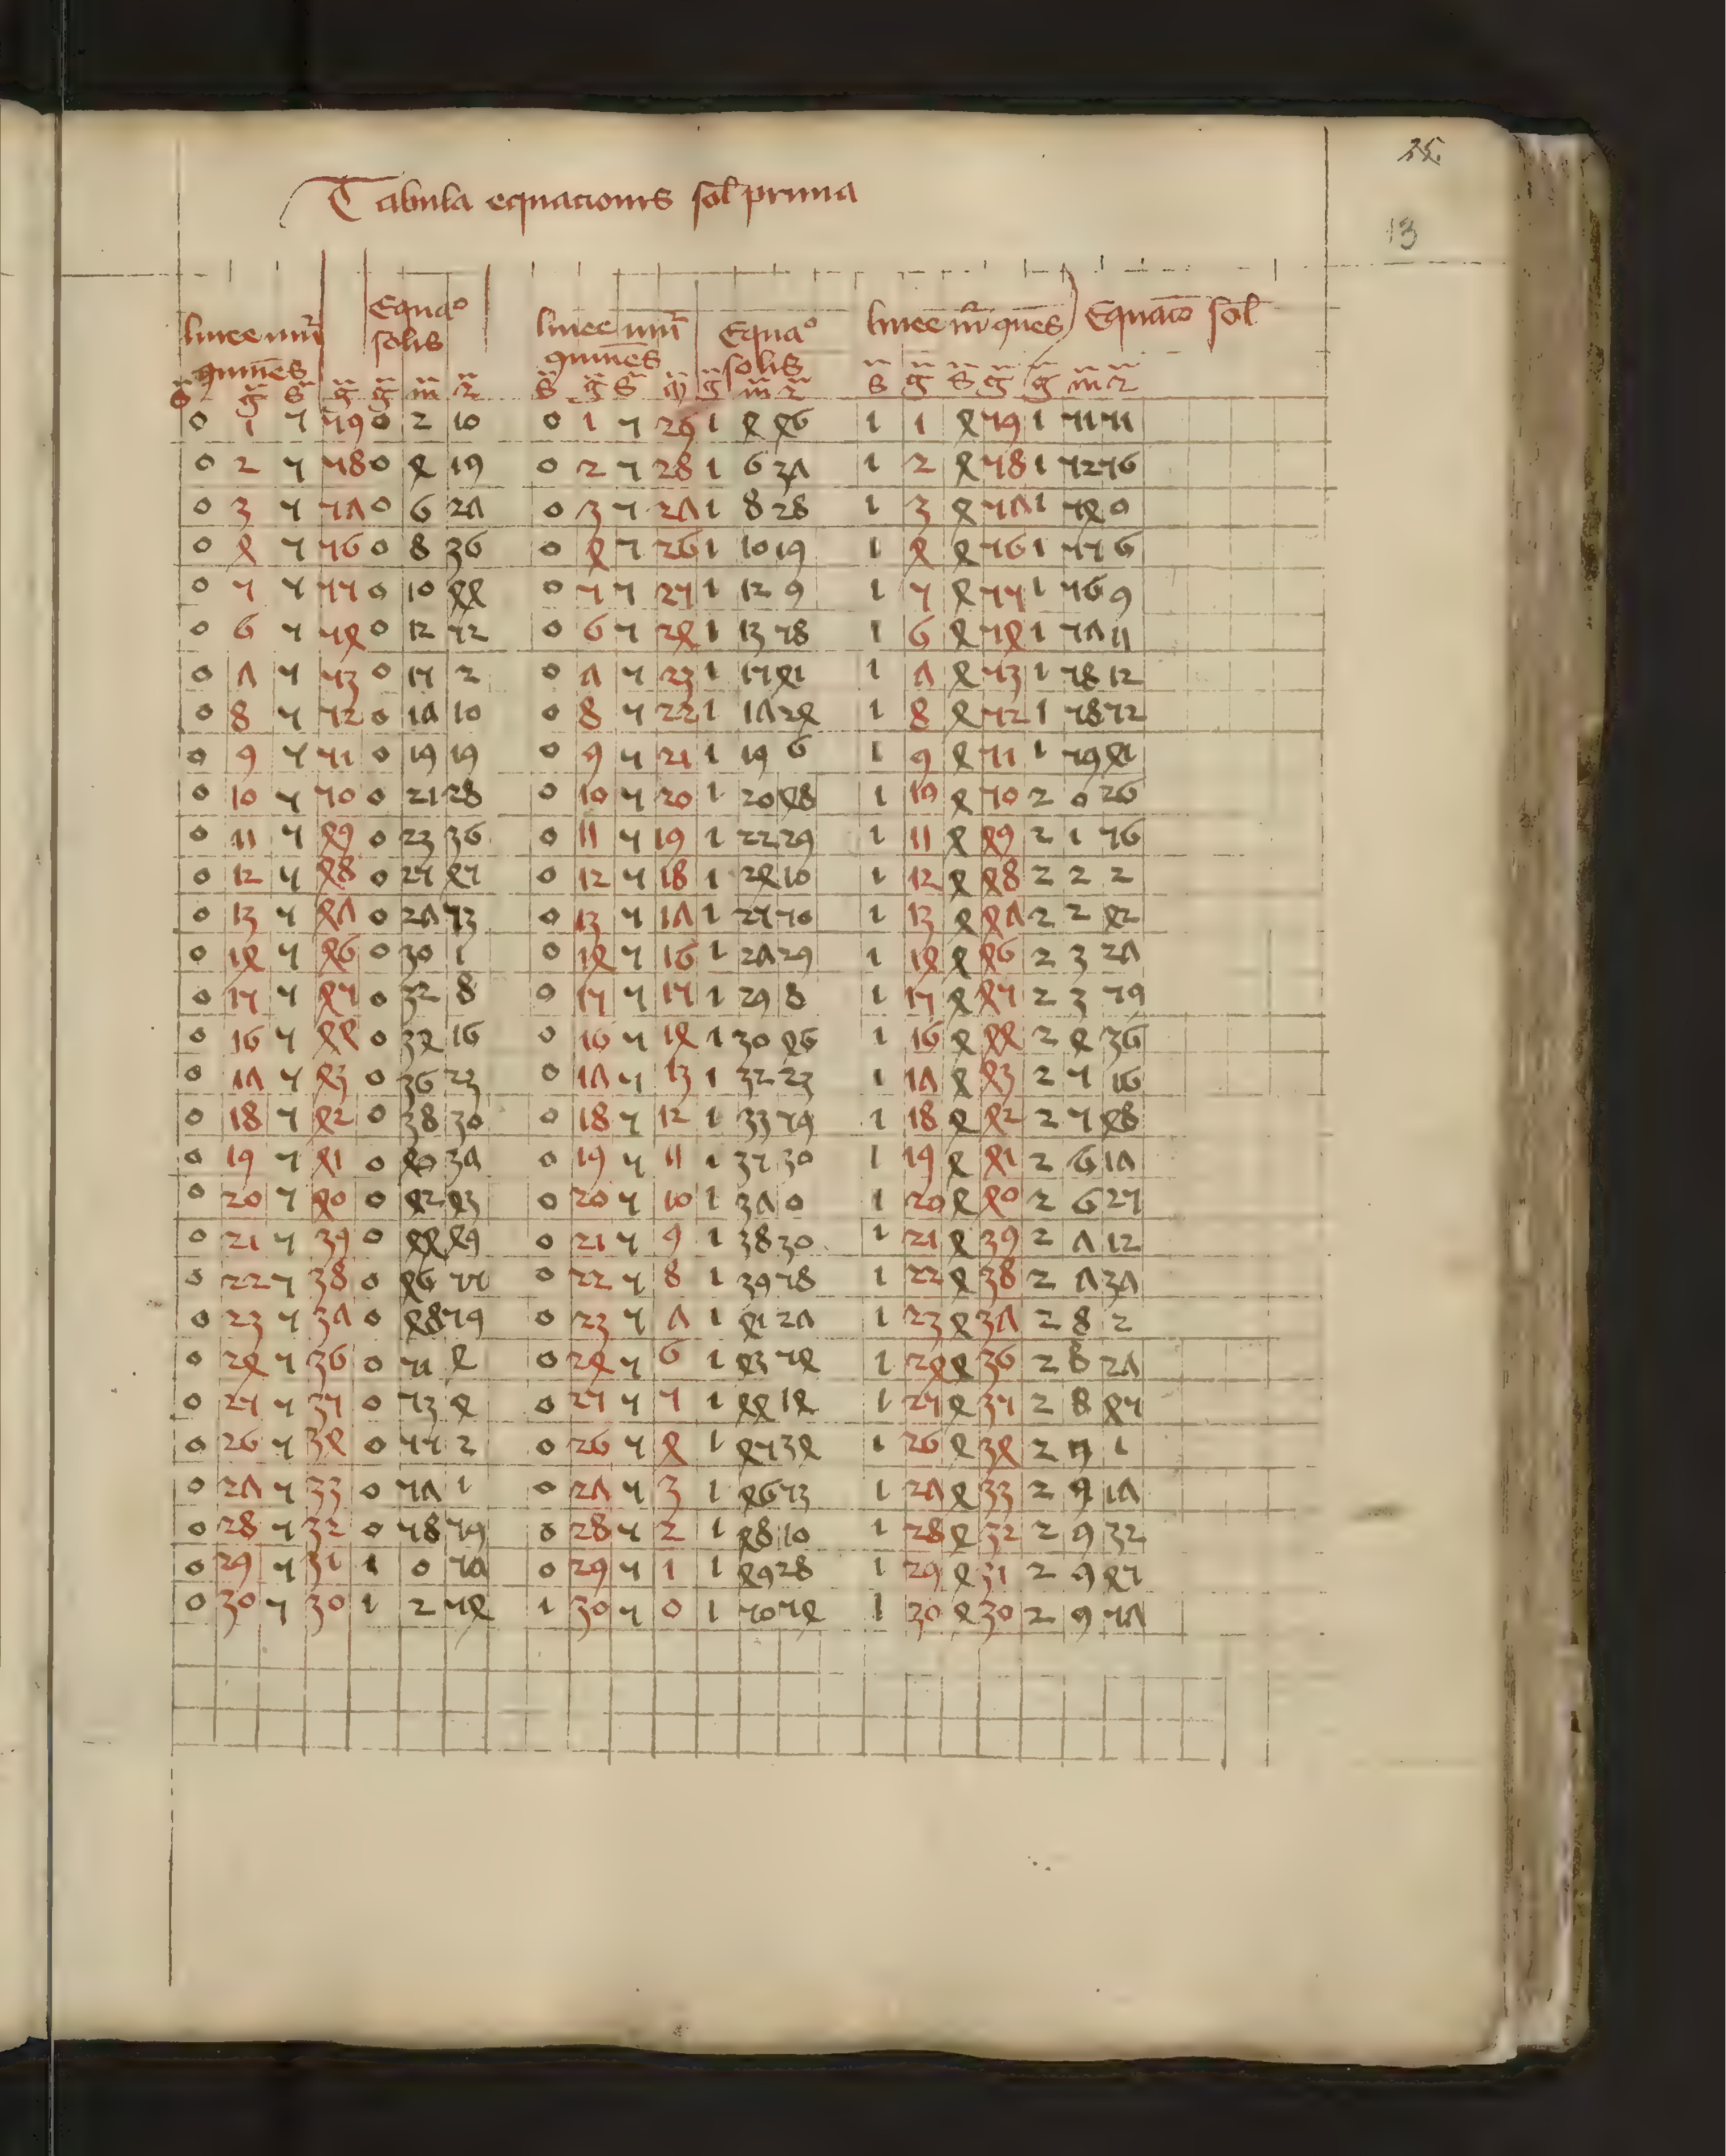 13
Tabula equacionis sol prima
linee Equao solis linee Equao solis linee Equacō sol
s g s g g m 2 s g s g g m 2 s g s g g m 2
0 1 5 59 0 2 10 0 1 5 29 1 4 46 1 1 4 59 1 51 51
0 2 5 58 0 4 19 0 2 5 28 1 6 37 1 2 4 58 1 52 56
0 3 5 57 0 6 27 0 3 5 27 1 8 28 1 3 4 57 1 54 0
0 4 5 56 0 8 36 0 4 5 26 1 10 19 1 4 4 56 1 55 6
0 5 5 55 0 10 44 0 5 5 25 1 12 9 1 5 4 55 1 56 9
0 6 5 54 0 12 52 0 6 5 24 1 13 58 1 6 4 54 1 57 11
0 7 5 53 0 15 2 0 7 5 23 1 15 41 1 7 4 53 1 58 12
0 8 5 52 0 17 10 0 8 5 22 1 17 24 1 8 4 52 1 58 52
0 9 5 51 0 19 19 0 9 5 21 1 19 6 1 9 4 51 1 59 41
0 10 5 50 0 21 28 0 10 5 20 1 20 48 1 10 4 50 2 0 26
0 11 5 49 0 23 36 0 11 5 19 1 22 29 1 11 4 49 2 1 56
0 12 5 48 0 25 45 0 12 5 18 1 24 10 1 12 4 48 2 2 2
0 13 5 47 0 27 53 0 13 5 17 1 25 50 1 13 4 47 2 2 42
0 14 5 46 0 30 1 0 14 5 16 1 27 29 1 14 4 46 2 3 27
0 15 5 45 0 32 8 0 15 5 15 1 29 8 1 15 4 45 2 3 59
0 16 5 44 0 34 16 0 16 5 14 1 30 46 1 16 4 44 2 4 36
0 17 5 43 0 36 23 0 17 5 13 1 32 23 1 17 4 43 2 5 16
0 18 5 42 0 38 30 0 18 5 12 1 33 59 1 18 4 42 2 5 48
0 19 5 41 0 40 37 0 19 5 11 1 35 30 1 19 4 41 2 6 17
0 20 5 40 0 42 43 0 20 5 10 1 37 0 1 20 4 40 2 6 25
0 21 5 39 0 44 49 0 21 5 9 1 38 30 1 21 4 39 2 7 12
0 22 5 38 0 46 55 0 22 5 8 1 39 58 1 22 4 38 2 7 37
0 23 5 37 0 48 59 0 23 5 7 1 41 27 1 23 4 37 2 8 2
0 24 5 36 0 51 4 0 24 5 6 1 43 54 1 24 4 36 2 8 27
0 25 5 35 0 53 4 0 25 5 5 1 44 14 1 25 4 35 2 8 45
0 26 5 34 0 55 2 0 26 5 4 1 45 34 1 26 4 34 2 9 1
0 27 5 33 0 57 1 0 27 5 3 1 46 53 1 27 4 33 2 9 17
0 28 5 32 0 58 59 0 28 5 2 1 48 10 1 28 4 32 2 9 32
0 29 5 31 1 0 57 0 29 5 1 1 49 28 1 29 4 31 2 9 45
0 30 5 30 1 2 54 1 30 5 0 1 50 54 1 30 4 30 2 9 57